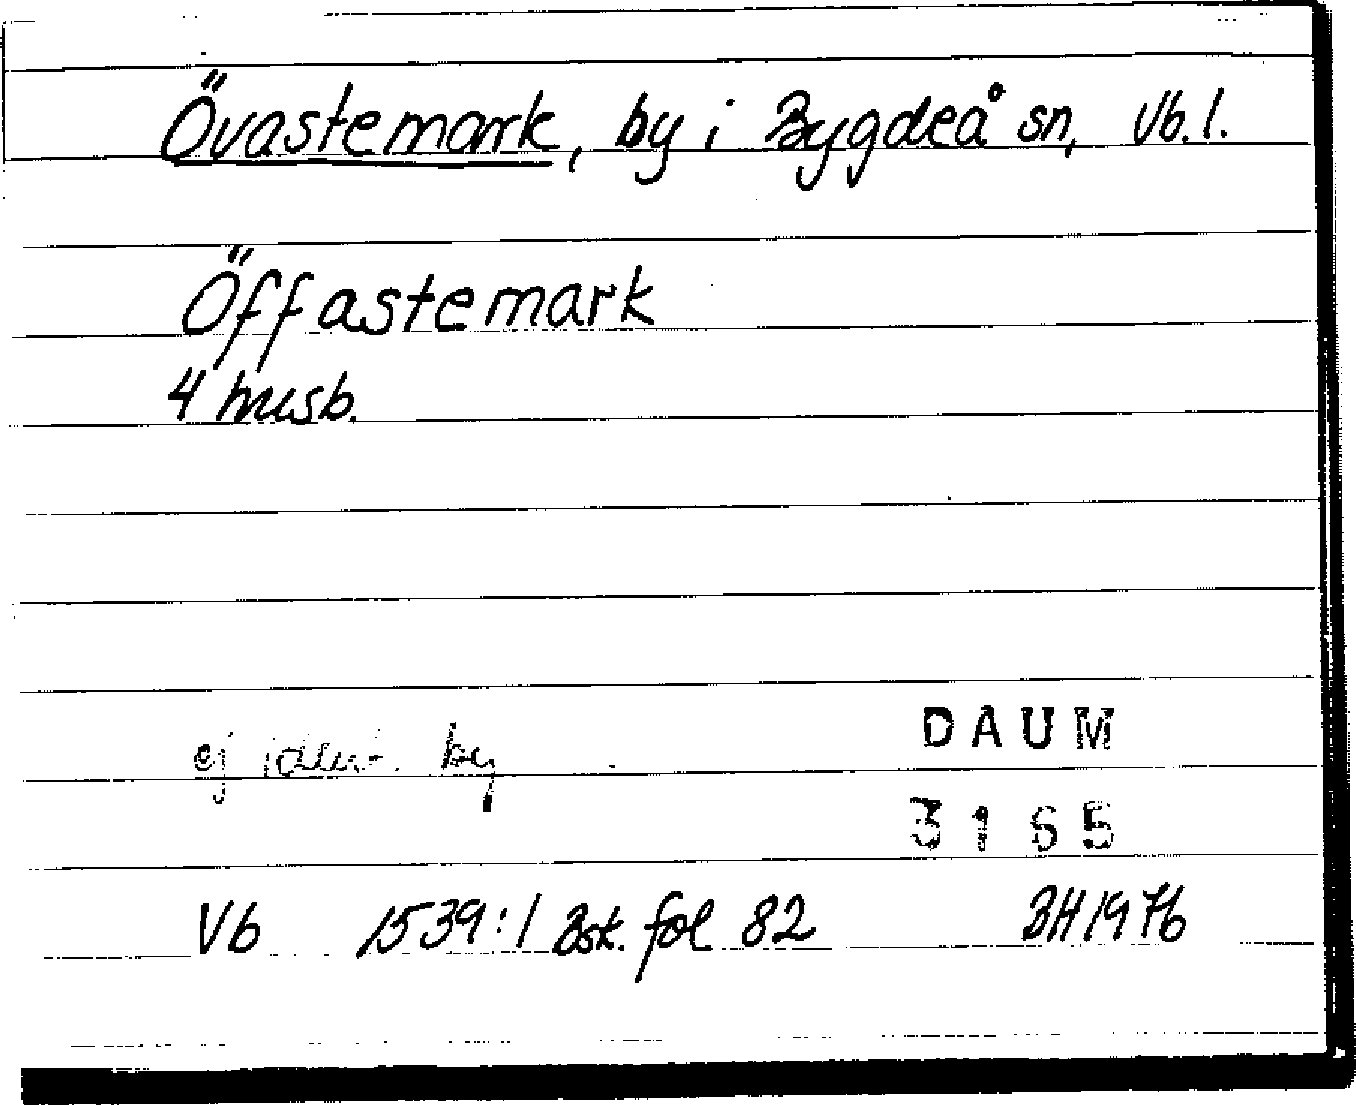 Övastemark, by i Bygdeå sn, Vb. l.
Öffastemark
4 husb.
DAUM
ej ident. by
3165
Vb 1539:1 Bsk. fol 82 BH 1976